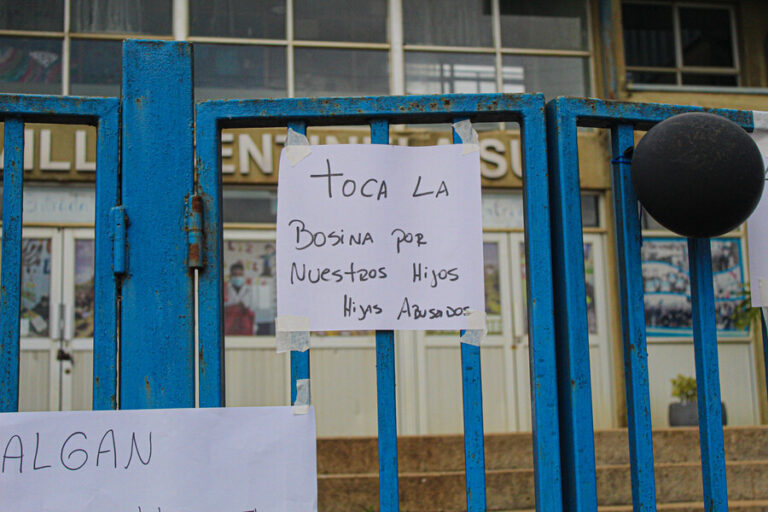 ILL ENTIN LA SU
TOCA LA
BOSINA POR
NUESTROS HIJOS
HIJAS ABUSADOS
ALGAN